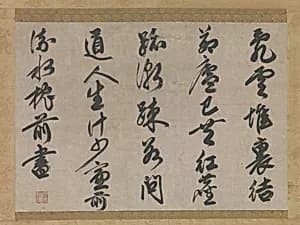 亂雲堆裏結
茅廬已共紅塵
跡漸疎若問
道人生計窓前
流水枕前書